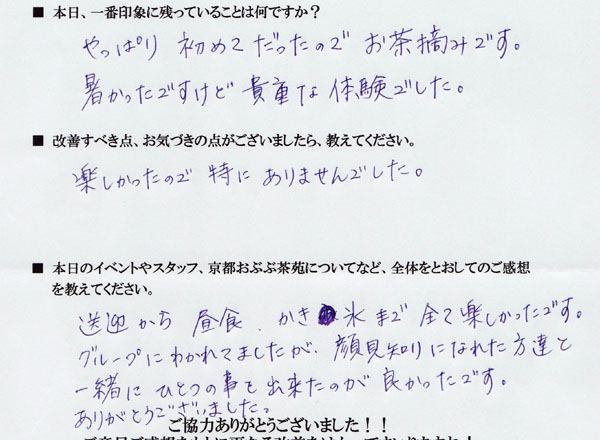 ■ 本日、一番印象に残っていることは何ですか？
やっぱり 初めてだったので お茶摘みです。
暑かったですけど 貴重な 体験でした。
■ 改善すべき点、お気づきの点がございましたら、教えてください。
楽しかったので 特に ありませんでした。
■ 本日のイベントやスタッフ、京都おぶぶ茶苑についてなど、全体をとおしてのご感想
を教えてください。
送迎から 昼食、かき氷まで 全て楽しかったです。
グループにわかれてましたが、顔見知りになれた方達と
一緒に ひとつの事を出来たのが 良かったです。
ありがとうございました。
ご協力ありがとうございました！！